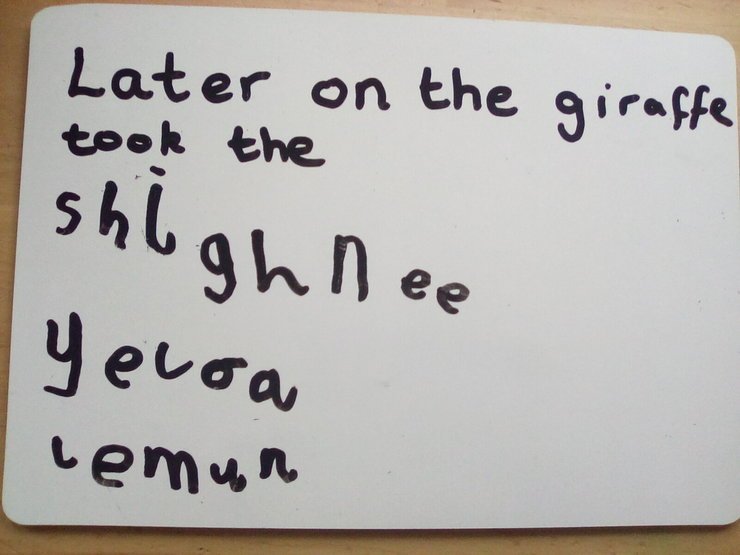 Later on the giraffe
took the
shighnee
yeloa
lemun